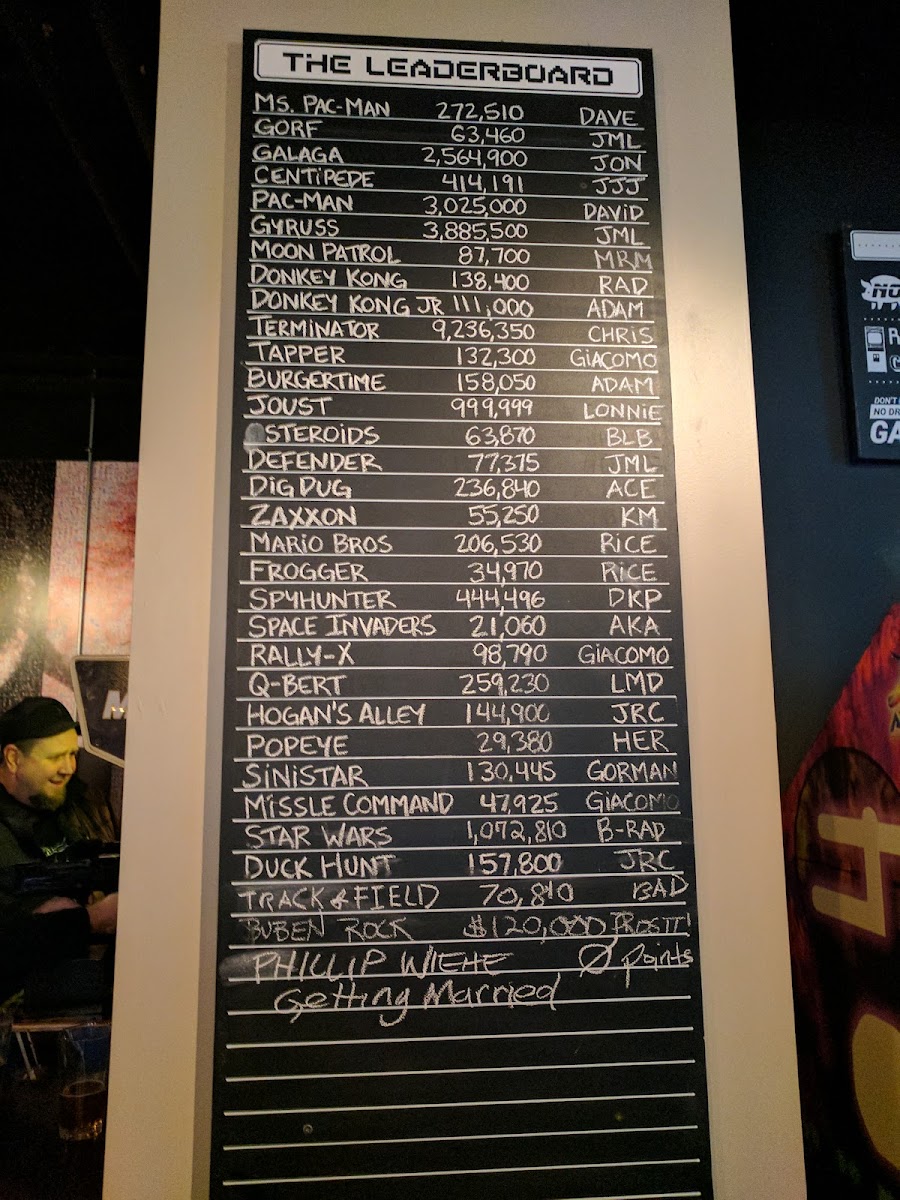 THE LEADERBOARD
MS. PAC-MAN 272,510 DAVE
GORF 63,460 JML
GALAGA 2,564,900 JON
CENTiPEDE 414,191 JJJ
PAC-MAN 3,025,000 DAViD
GYRUSS 3,885,500 JML
MOON PATROL 87,700 MRM
DONKEY KONG 138,400 RAD
DONKEY KONG JR 111,000 ADAM
TERMiNATOR 9,236,350 CHRiS
TAPPER 132,300 GiACOMO
BURGERTiME 158,050 ADAM
JOUST 999,999 LONNiE
STEROiDS 63,870 BLB
DEFENDER 77,375 JML
DiG DUG 236,840 ACE
ZAXXON 55,250 KM
MARiO BROS 206,530 RiCE
FROGGER 34,970 RiCE
SPYHUNTER 444,496 DKP
SPACE INVADERS 21,060 AKA
RALLY-X 98,790 GiACOMO
Q-BERT 259,230 LMD
HOGAN'S ALLEY 144,900 JRC
POPEYE 29,380 HER
SiNiSTAR 130,445 GORMAN
MiSSLE COMMAND 47,925 GiACOMO
STAR WARS 1,072,810 B-RAD
DUCK HUNT 157,800 JRC
TRACK & FIELD 70,810 BAD
BUBEN ROCK $120,000 PROSTT!
PHILLIP WIEHE 0 points
Getting Married
NO
DON'T
NO DR
GA
4